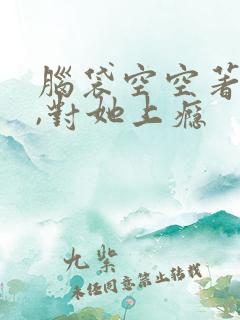 腦袋空空著
,對她上癮
九紫
未經同意禁止轉載